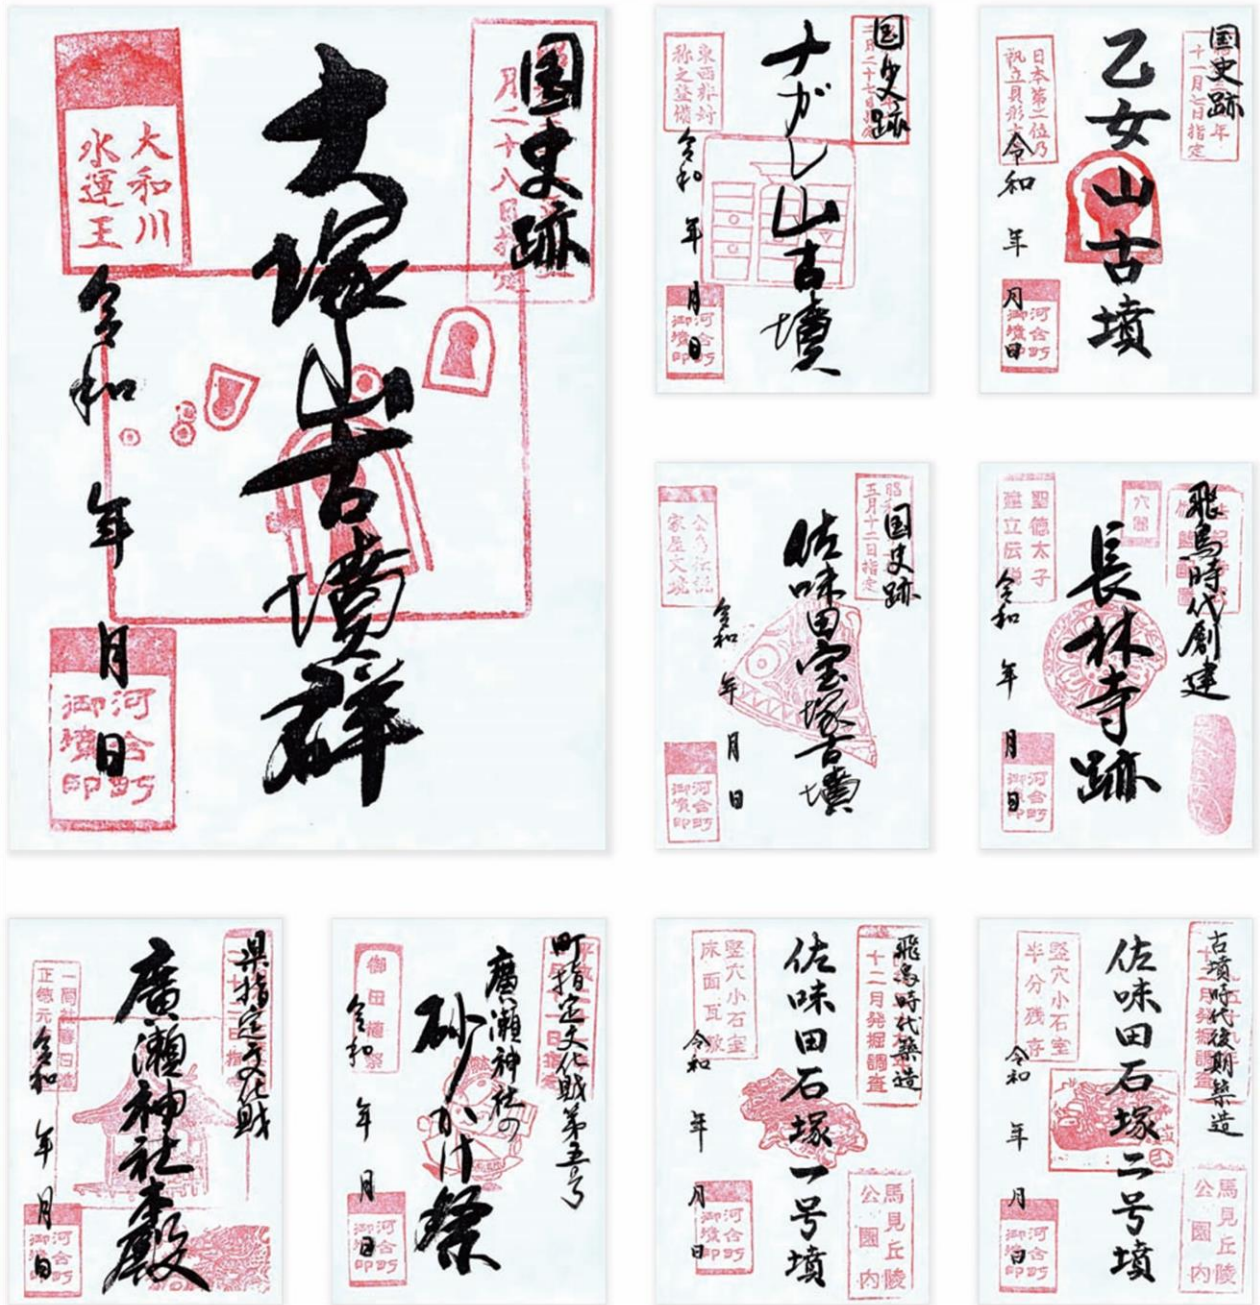 国史跡
月二十八日指定
大塚山古墳群
大和川
水運王
令和 年 月 日
河合町
御墳印
国史跡
二月二十七日指定
ナガレ山古墳
東西葬封
称之整備
令和 年 月 日
河合町
御墳印
国史跡
十一月七日指定
乙女山古墳
日本第二位乃
帆立貝形
令和 年 月 日
河合町
御墳印
国史跡
五月十二日指定
佐味田宝塚古墳
家屋文鏡
令和 年 月 日
河合町
御墳印
飛鳥時代創建
長林寺跡
聖徳太子
建立伝説
令和 年 月 日
河合町
御墳印
県指定文化財
廣瀬神社本殿
一間社春日造
正徳元
令和 年 月 日
河合町
御墳印
町指定文化財第五号
廣瀬神社の
砂かけ祭
御田植祭
令和 年 月 日
河合町
御墳印
飛鳥時代築造
十二月発掘調査
佐味田石塚一号墳
竪穴小石室
床面瓦敷
令和 年 月 日
馬見丘陵
公園内
河合町
御墳印
古墳時代後期築造
十二月発掘調査
佐味田石塚二号墳
竪穴小石室
半分残存
令和 年 月 日
馬見丘陵
公園内
河合町
御墳印